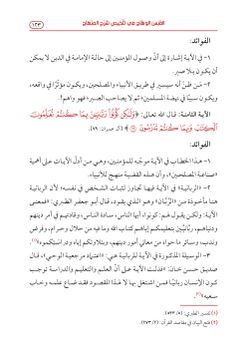 ١٢٣
القبس الوهاج في تلخيص شرح المنهاج
الفوائد:
١- في الآية إشارة إلى أنَّ وصول المؤمنين إلى حالة الإمامة في الدين لا يمكن
أن يكون بلا صبر.
٢- مَن ظنَّ أنه سيسير في طريق الأنبياء والمصلحين، ويكون مؤثرًا في واقعه،
ويكون سببًا في نهضة المسلمين؛ ثم لا يصاحب الصبر؛ فهو واهم!
الآية الثامنة: قال الله تعالى: ﴿وَلَٰكِن كُونُوا۟ رَبَّـٰنِيِّـۧنَ بِمَا كُنتُمْ تُعَلِّمُونَ
ٱلْكِتَـٰبَ وَبِمَا كُنتُمْ تَدْرُسُونَ﴾ [آل عمران: ٧٩].
الفوائد:
١- هذا الخطاب في الآية موجَّه للمؤمنين، وهي من أول الآيات على أهمية
«صناعة المصلحين»، وأن هذه القضية منهج للأنبياء.
٢- «الربانية» في الآية فيها تجاوز لثبات الشخص في نفسه؛ لأن الربانية
هنا مأخوذة من «الرَّبَّان» وهو الذي يقود، قال أبو جعفر الطبري: «فمعنى
الآية: ولكن يقول لهم: كونوا، أيها الناس، سادة الناس، وقادتهم في أمر دينهم
ودنياهم، ربّانيّين بتعليمكم إياهم كتاب الله وما فيه من حلال وحرام، وفرض
وندب، وسائر ما حواه من معاني أمور دينهم، وبتلاوتكم إياه ودراستكموه»(١).
٣- الوسيلة المذكورة في الآية للربانية هي: «اعتماد مرجعية الوحي»، قال
صديق حسن خان: «فدلت الآية على أنّ العلم والتعليم والدراسة توجب
كون الإنسان ربانيًّا فمن اشتغل بها لا لهذا المقصود فقد ضاع علمه وخاب
سعيه»(٢).
(١) تفسير الطبري: (٥/ ٥٣١).
(٢) فتح البيان في مقاصد القرآن: (٢/ ٢٧٣).